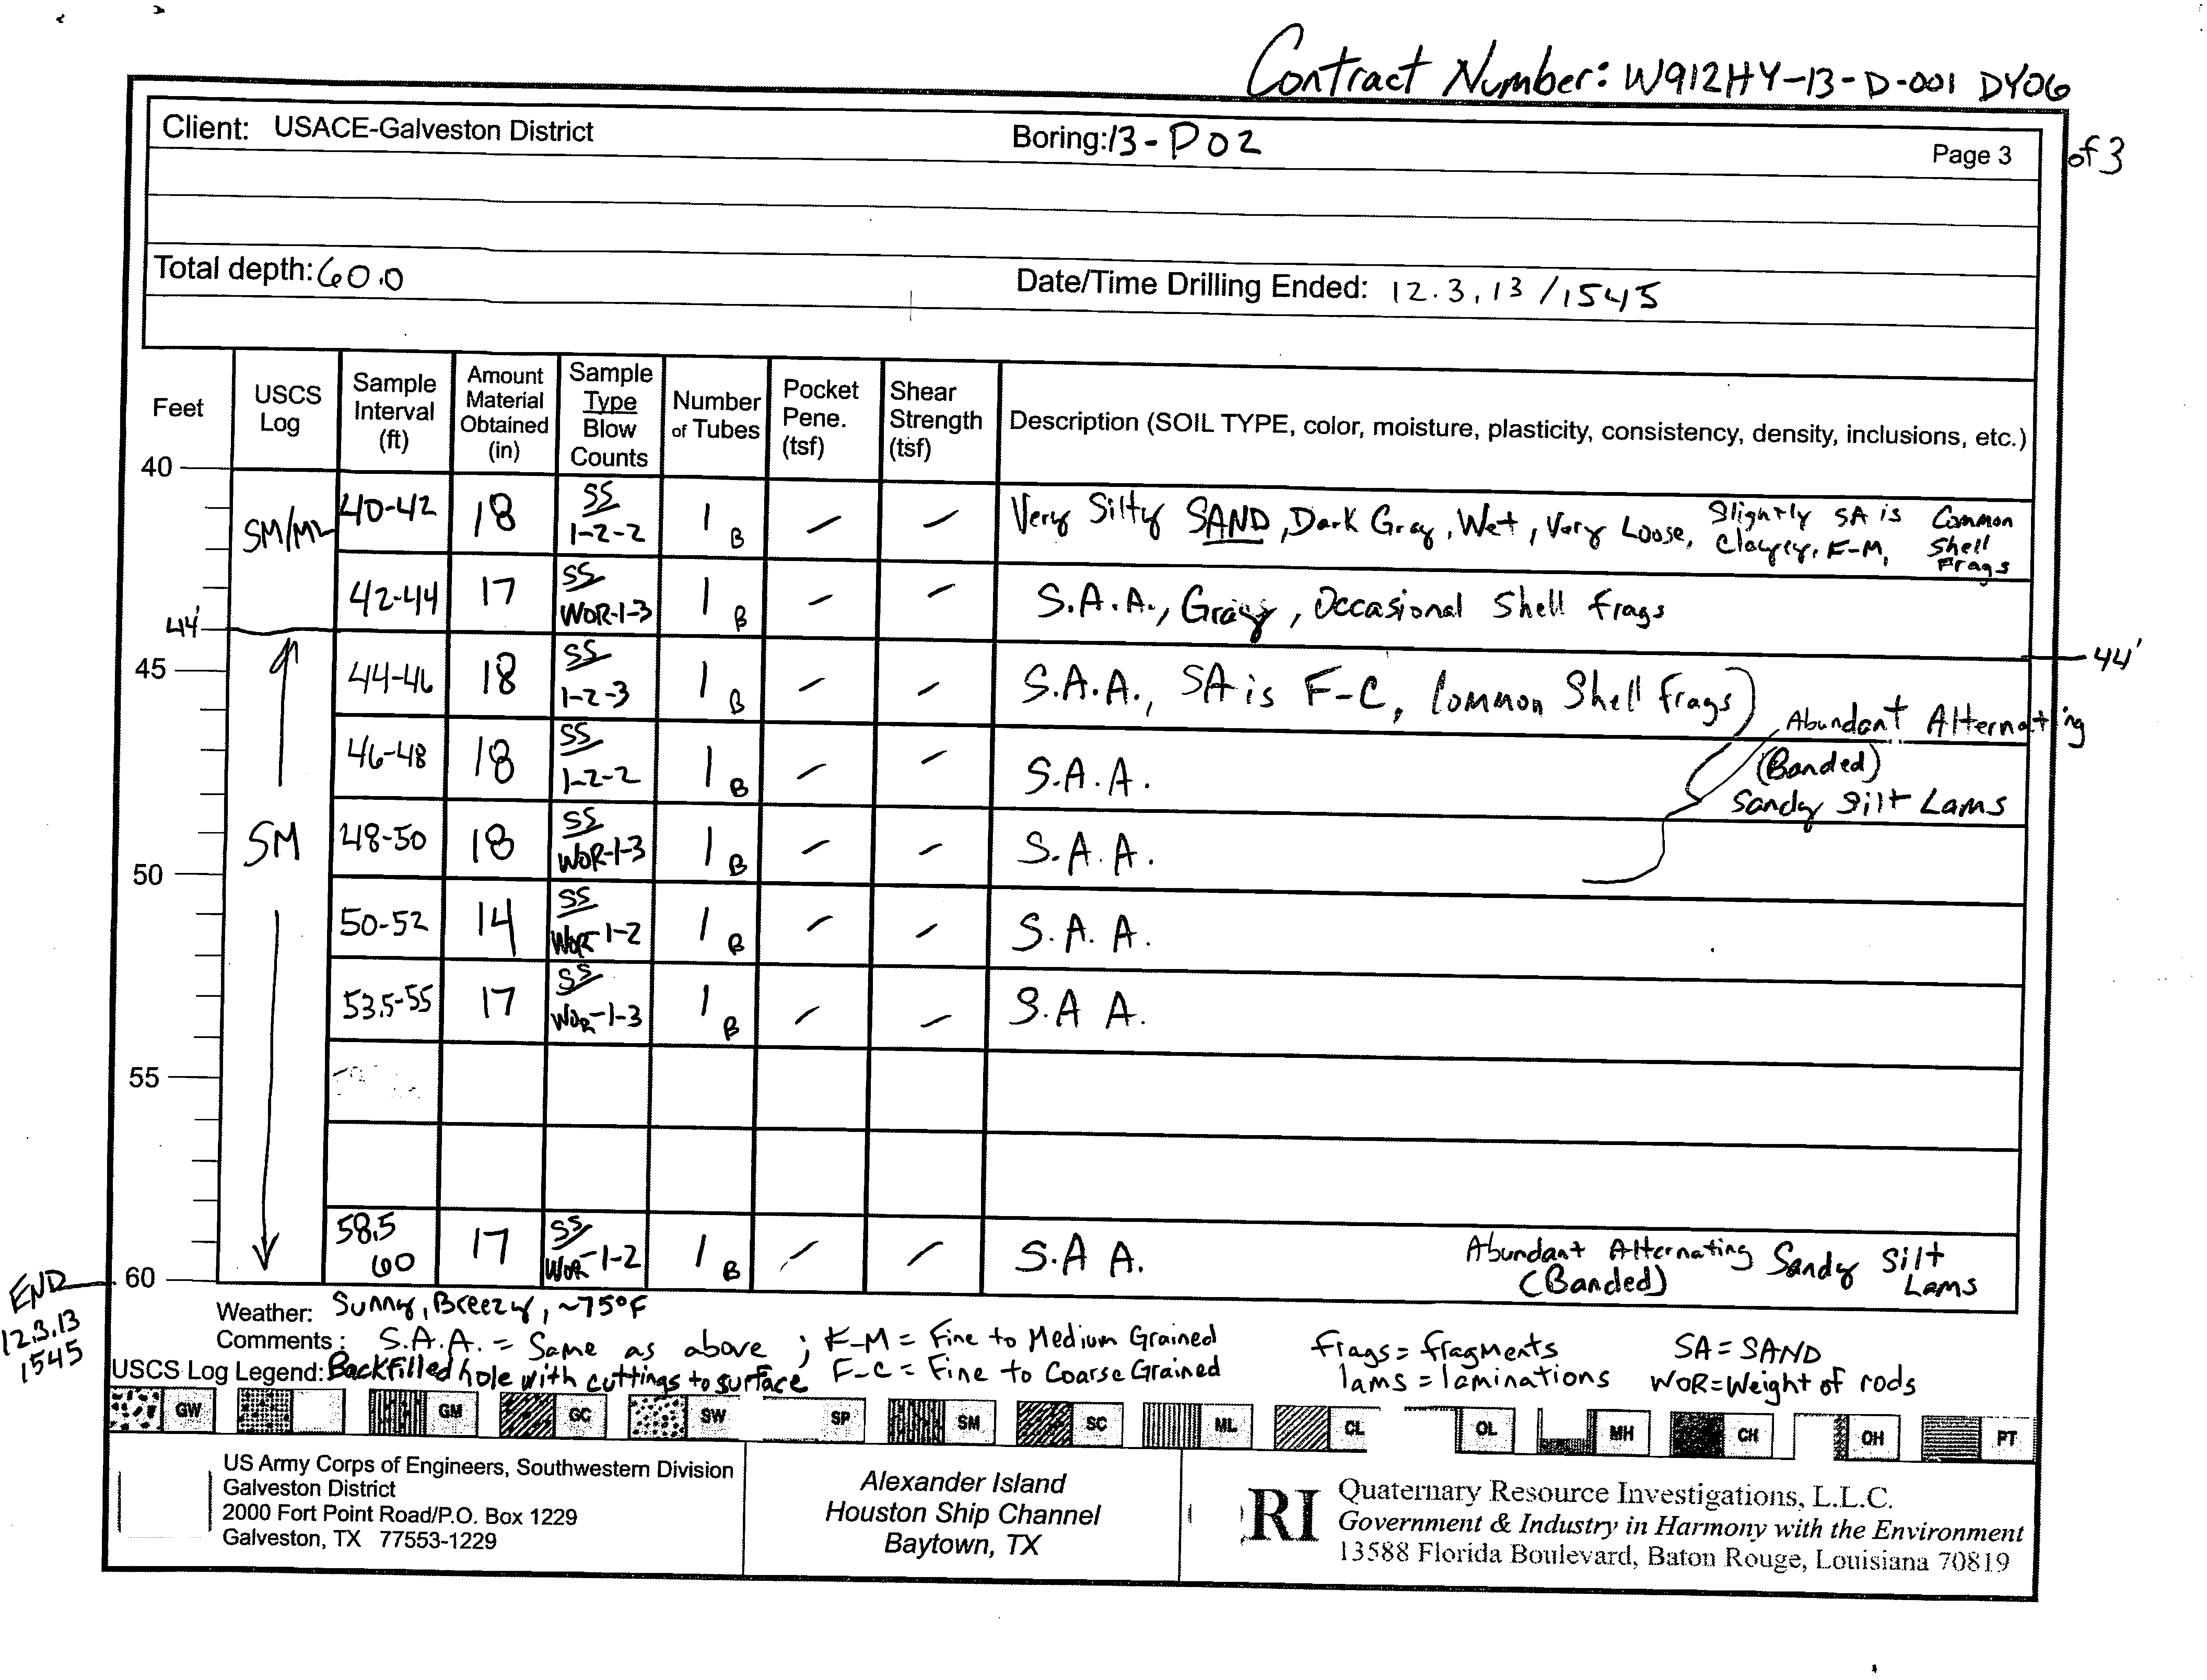 Contract Number: W912HY-13-D-001 DY06
Client: USACE-Galveston District Boring:13-P02 Page 3 of 3
Total depth:60.0 Date/Time Drilling Ended: 12.3.13/1545
Feet USCS Log Sample Interval (ft) Amount Material Obtained (in) Sample Type Blow Counts Number of Tubes Pocket Pene. (tsf) Shear Strength (tsf) Description (SOIL TYPE, color, moisture, plasticity, consistency, density, inclusions, etc.)
40
SM/ML 40-42 18 SS 1-2-2 1 B - - Very Silty SAND, Dark Gray, Wet, Very Loose, Slightly Clayey, SA is F-M, Common Shell Frags
42-44 17 SS WOR-1-3 1 B - - S.A.A., Gray, Occasional Shell frags
44' 44'
45 44-46 18 SS 1-2-3 1 B - - S.A.A., SA is F-C, Common Shell frags
Abundant Alternating
(Banded)
Sandy Silt Lams
46-48 18 SS 1-2-2 1 B - - S.A.A.
SM 48-50 18 SS WOR-1-3 1 B - - S.A.A.
50
50-52 14 SS WOR-1-2 1 B - - S.A.A.
53.5-55 17 SS WOR-1-3 1 B - - S.A A.
55
58.5 60 17 SS WOR-1-2 1 B - - S.A A. Abundant Alternating (Banded) Sandy Silt Lams
60
END
12.3.13
1545
Weather: Sunny, Breezy, ~75°F
Comments: S.A.A. = Same as above; F-M = Fine to Medium Grained Frags = fragments SA = SAND
USCS Log Legend: Backfilled hole with cuttings to surface F-C = Fine to Coarse Grained lams = laminations WOR=Weight of rods
GW GM GC SW SP SM SC ML CL OL MH CH OH PT
US Army Corps of Engineers, Southwestern Division
Galveston District
2000 Fort Point Road/P.O. Box 1229
Galveston, TX 77553-1229
Alexander Island
Houston Ship Channel
Baytown, TX
RI
Quaternary Resource Investigations, L.L.C.
Government & Industry in Harmony with the Environment
13588 Florida Boulevard, Baton Rouge, Louisiana 70819